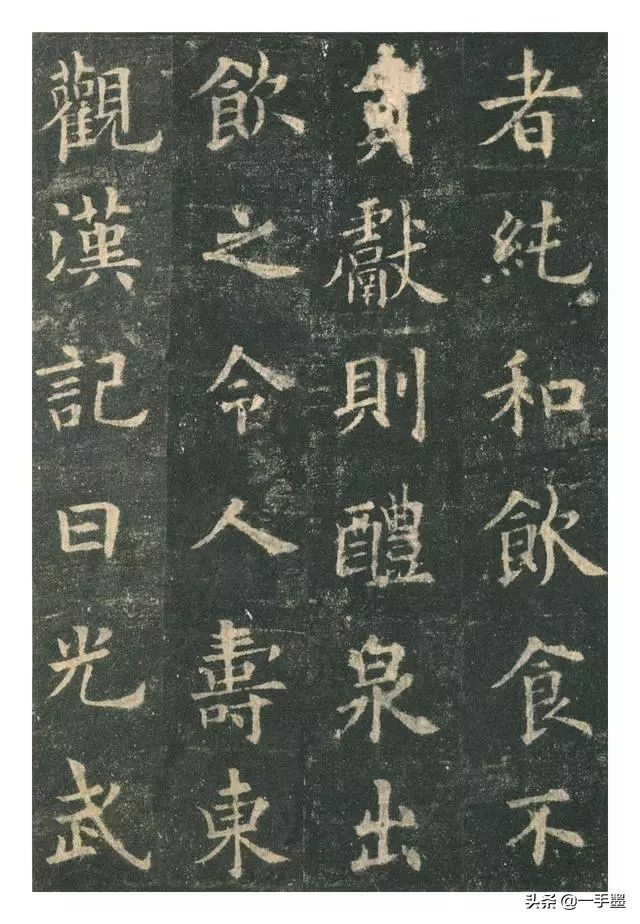 者純和飲食不
貢獻則醴泉出
飲之令人壽東
觀漢記曰光武
头条 @一手墨